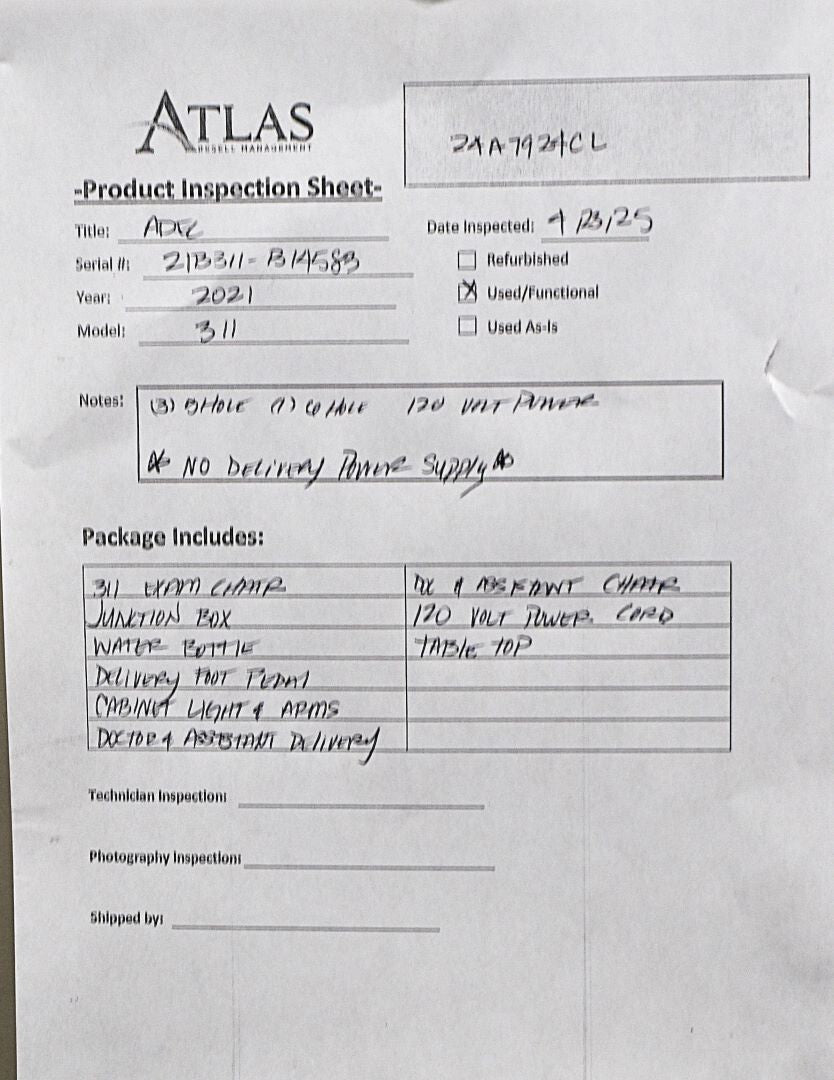 ATLAS
RESELL MANAGEMENT
2AA7924CL
-Product Inspection Sheet-
Title: ADEC
Date Inspected: 4/23/25
Serial #: 21B311-B14583
Refurbished
Year: 2021
Used/Functional
Model: 311
Used As-Is
Notes: (3) 5 HOLE (1) 6 HOLE 120 VOLT POWER
* NO DELIVERY POWER SUPPLY *
Package Includes:
311 EXAM CHAIR
JUNCTION BOX
WATER BOTTLE
DELIVERY FOOT PEDAL
CABINET LIGHT & ARMS
DOCTOR & ASSISTANT DELIVERY
& ASSISTANT CHAIR
120 VOLT POWER CORD
TABLE TOP
Technician Inspection:
Photography Inspection:
Shipped by: